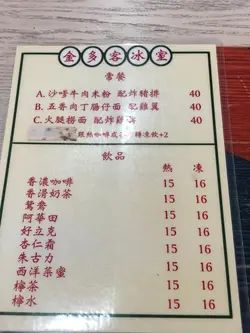 金多客冰室
常餐
A. 沙嗲牛肉米粉 配炸豬排 40
B. 五香肉丁腸仔面 配雞翼 40
C. 火腿撈面 配炸雞扒 40
跟熱咖啡或 轉凍飲+2
飲品
熱 凍
香濃咖啡 15 16
香滑奶茶 15 16
鴛鴦 15 16
阿華田 15 16
好立克 15 16
杏仁霜 15 16
朱古力 15 16
西洋菜蜜 15 16
檸茶 15 16
檸水 15 16